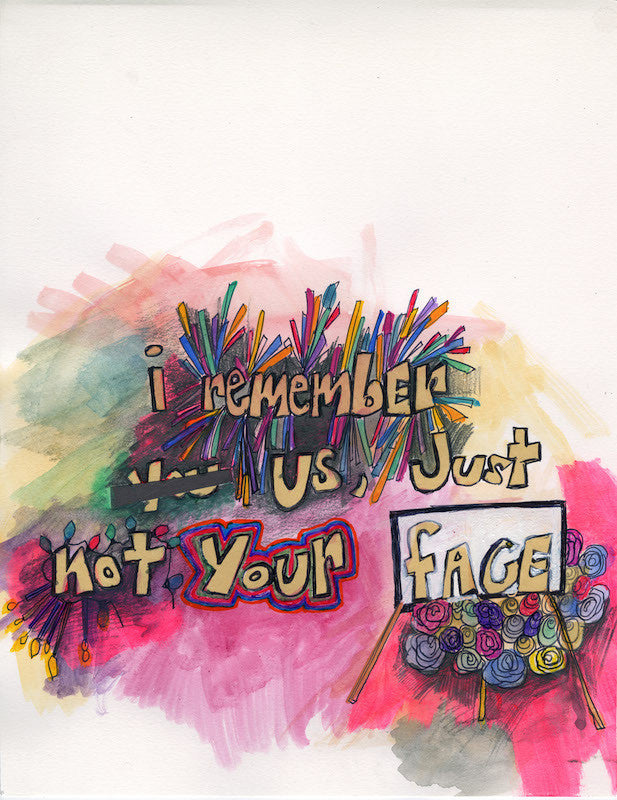 i remember
you us, Just
not Your face